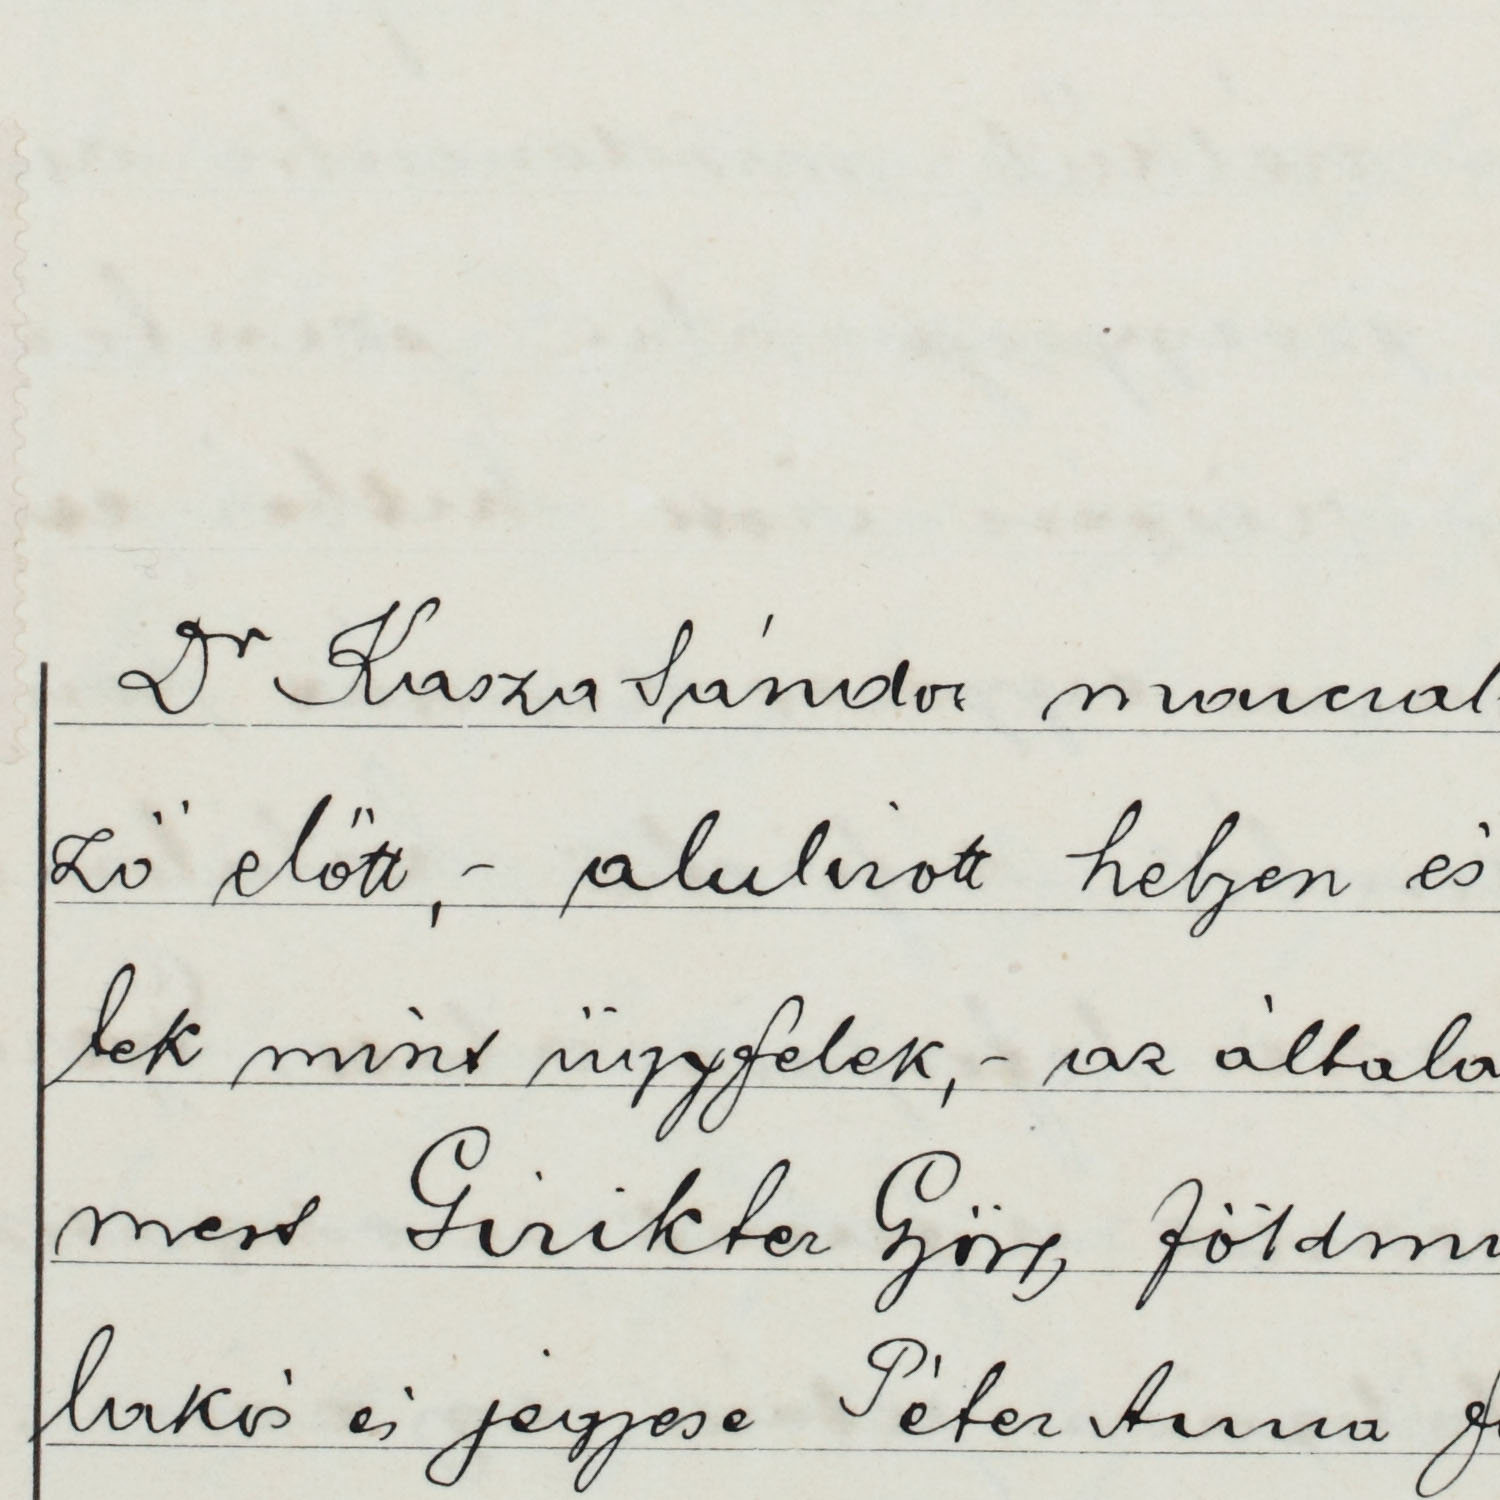 Dr Kasza Sándor marczal
ző előtt,- alulirott helyen és
tek mint ügyfelek,- az általa
mert Girikter György földmű
lakós és jegyese Péter Anna